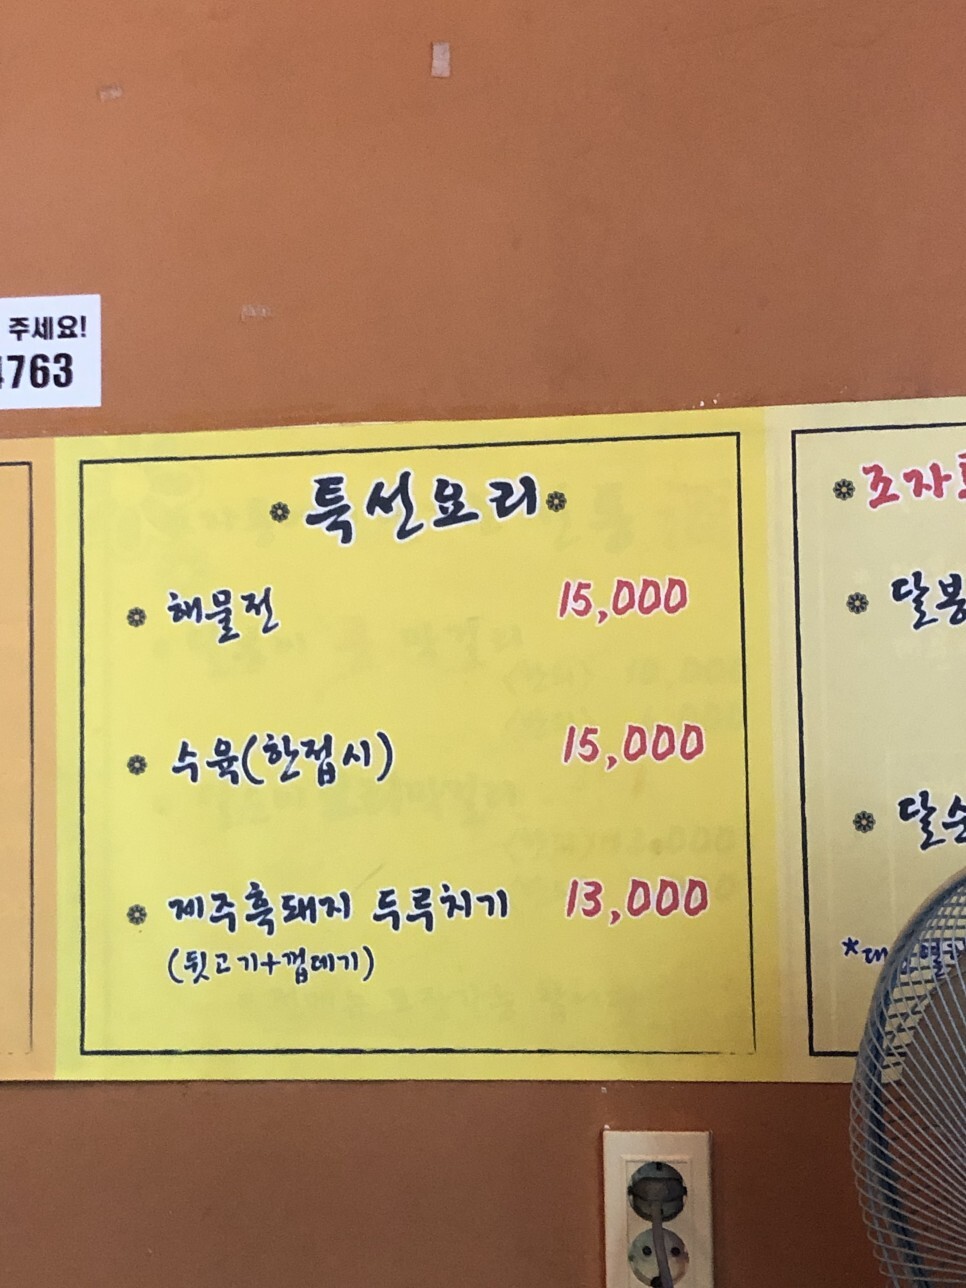 주세요!
4763
특선요리
해물전 15,000
수육(한접시) 15,000
제주흑돼지 두루치기 13,000
(뒷고기+껍데기)